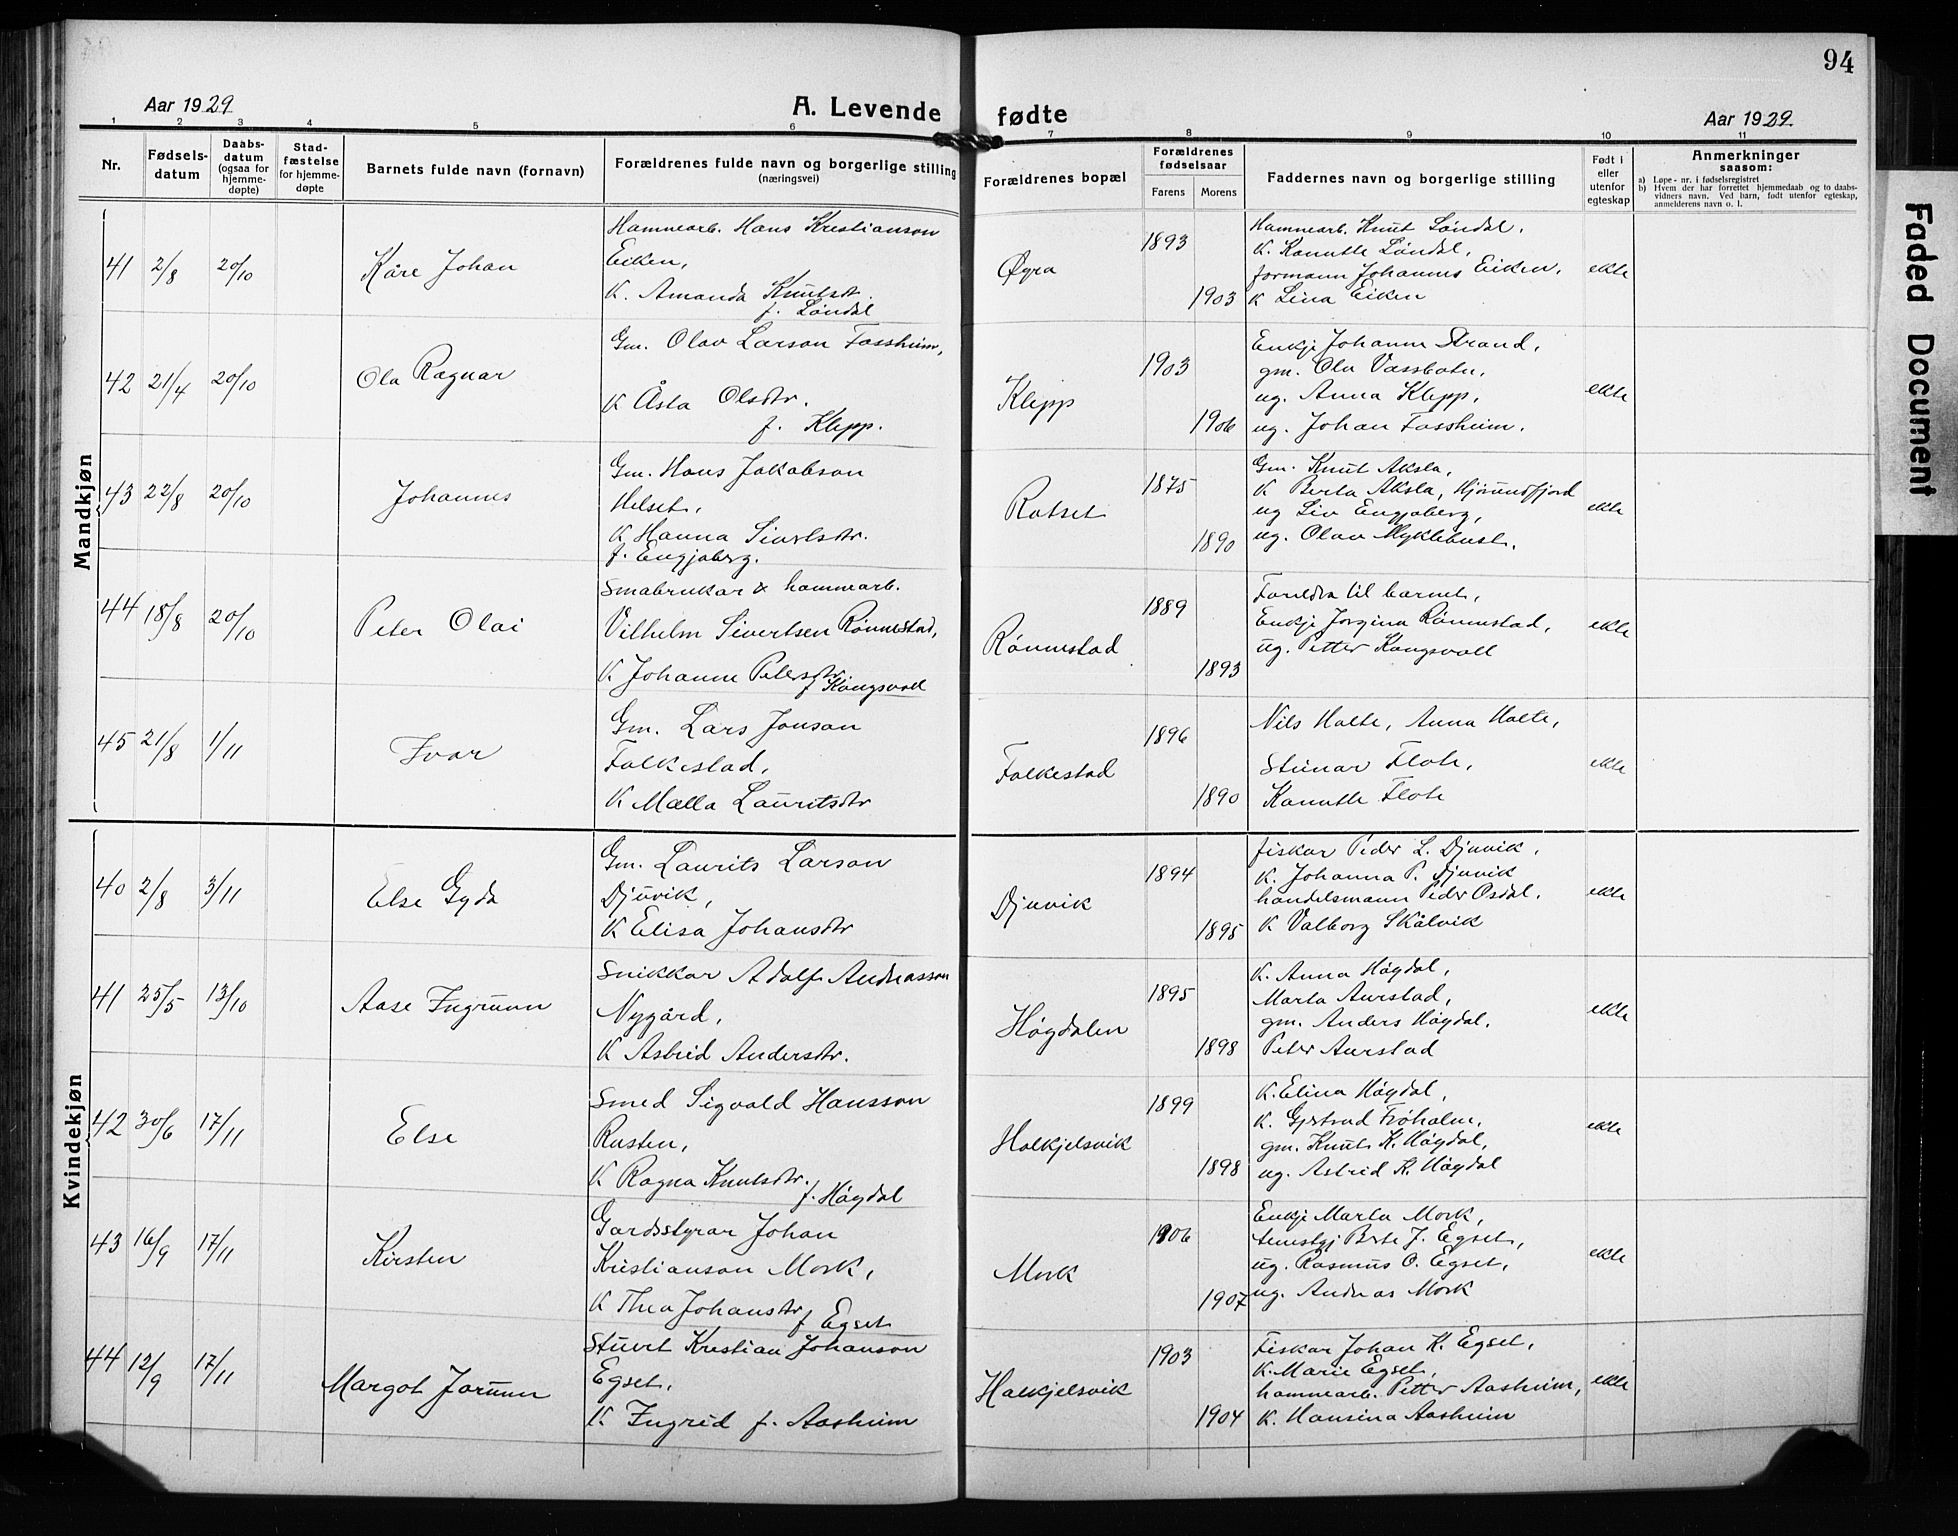 94
Aar 1929
A. Levende
fødte
Aar 1929
1 2 3 4 5 6 7 8 9 10 11
Nr.
Fødsels-
datum
Daabs-
datum
(ogsaa for
hjemme-
døpte)
Stad-
fæstelse
for hjemme-
døpte
Barnets fulde navn (fornavn)
Forældrenes fulde navn og borgerlige stilling
(næringsvei)
Forældrenes bopæl
Forældrenes
fødselsaar
Farens Morens
Faddernes navn og borgerlige stilling
Født i
eller
utenfor
egteskap
Anmerkninger
saasom:
a) Løpe-nr. i fødselsregistret
b) Hvem der har forrettet hjemmedaab og to daabs-
vidners navn. Ved barn, født utenfor egteskap,
anmelderens navn o. l.
Mandkjøn
41 2/8 20/10
Kåre Johan
Hamnearb. Hans Kristianson
Eiken,
K. Amanda Knutsdtr.
f. Løndal
Øyra
1893
1903
Hamnearb. Knut Løndal,
K. Kanutte Løndal,
formann Johannes Eiken,
K Lina Eiken
ekte
42 21/4 20/10
Ola Ragnar
Gm. Olav Larson Fossheim,
K Åsta Olsdtr.
f. Klepp.
Klepp
1903
1906
Enkje Johanne Strand,
gm. Ola Vassbotn,
ug. Anna Klepp,
ug. Johan Fossheim.
ekte
43 22/8 20/10
Johannes
Gm. Hans Jakobson
Helset,
K Hanna Sivertsdtr.
f. Engjaberg.
Rotset
1875
1890
Gm. Knut Aksla,
K Berta Aksla, Hjørundfjord
ug Liv Engjaberg,
ug. Olav Myklebust.
ekte
44 18/8 20/10
Peter Olai
Småbrukar & hamnearb.
Vilhelm Sivertsen Rønnestad,
K Johanne Petersdtr
f Kongsvoll
Rønnestad
1889
1893
Foreldra til barnet,
Enkje Jorgina Rønnestad,
ug. Petter Kongsvoll
ekte
45 21/8 1/11
Ivar
Gm. Lars Jonson
Folkestad,
K Mælla Lauritsdtr
Folkestad
1896
1890
Nils Holte, Anna Holte,
Steinar Flote,
Kanutte Flote
ekte
Kvindekjøn
40 2/8 3/11
Else Gyda
Gm. Laurits Larson
Djuvik,
K Elisa Johansdtr
Djuvik
1894
1895
fiskar Peder L. Djuvik,
K. Johanna P. Djuvik
handelsmann Peder Osdal,
K Valborg Skålvik
ekte
41 25/5 13/10
Aase Ingrunn
Snikkar Adolf Andreasson
Nygård,
K Astrid Andersdtr.
Høgdalen
1895
1898
K. Anna Høgdal,
Marta Aurstad,
gm. Anders Høgdal.
Peter Aurstad
ekte
42 30/6 17/11
Else
Smed Sigvald Hansson
Rusten,
K Ragna Knutsdtr.
f. Høgdal
Halkjelsvik
1899
1898
K. Elina Høgdal,
K. Gjertrud Frøholm,
gm. Knut K. Høgdal,
ug. Astrid K. Høgdal
ekte
43 16/9 17/11
Kirsten
Gardsstyrar Johan
Kristianson Mork,
K Thea Johansdtr
f Egset
Mork
1906
1907
Enkje Marta Mork,
tenestgj Brte J. Egset,
ug. Rasmus O. Egset,
ug. Andreas Mork
ekte
44 12/9 17/11
Margot Jorunn
Stuert Kristian Johanson
Egset,
K. Ingrid f. Aasheim
Halkjelsvik
1903
1904
Fiskar Johan K. Egset,
K. Marie Egset,
hamnearb. Petter Aasheim,
K. Hansina Aasheim
ekte
Faded Document